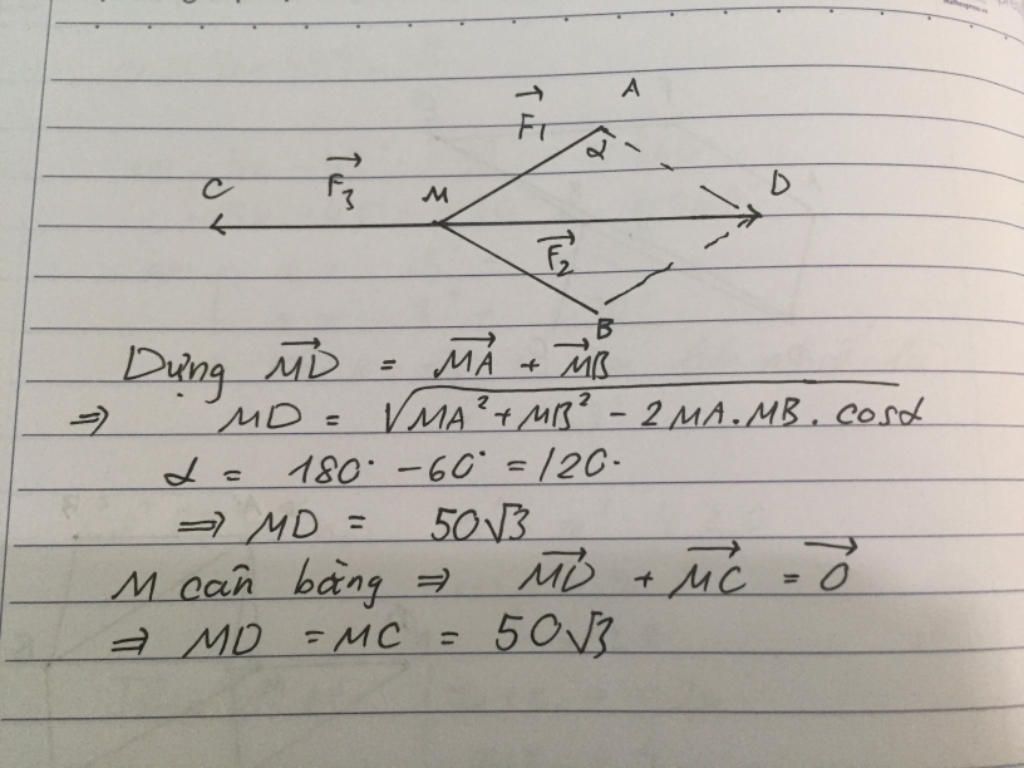 A
F₁→
α
C
F₃→
M
D
F₂→
B
Dựng MD→ = MA→ + MB→
⇒ MD = √(MA² + MB² - 2MA.MB.cosα)
α = 180° - 60° = 120°
⇒ MD = 50√3
M cân bằng ⇒ MD→ + MC→ = 0→
⇒ MD = MC = 50√3